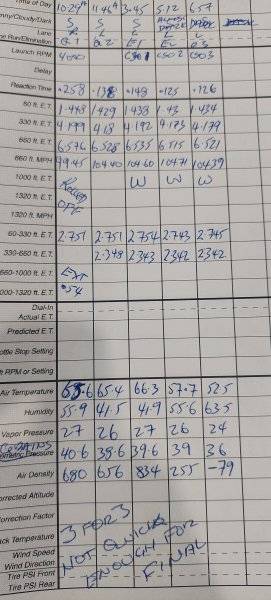 Time of Day 10 29 A 11 46 A 3:45 5.12 6 57
nny/Cloudy/Dark S S S DARK
Lane
e Run/Elimination Q1 Q2 E1 E2 E3
Launch RPM
Delay
Reaction Time .258 .138 .148 .125 .126
60 ft. E.T. 1.448 1429 1.438 1.43 1.434
330 ft. E.T. 4.199 4.18 4.192 4.173 4.179
660 ft. E.T. 6.576 6.528 6.535 6.515 6.521
660 ft. MPH 99.45 104.40 104.60 104.71 104.39
1000 ft. E.T. W W W
1320 ft. E.T. OFF
1320 ft. MPH
60-330 ft. E.T. 2.751 2.751 2.754 2.743 2.745
330-660 ft. E.T. 2.348 2.343 2.342 2.342
660-1000 ft. E.T. EXT
000-1320 ft. E.T. .54
Dial-In
Actual E.T.
Predicted E.T.
ottle Stop Setting
ft RPM or Setting
Air Temperature 65.4 66.3 57.7 52.5
Humidity 55.9 41.5 41.9 55.6 63.5
Vapor Pressure 27 26 27 26 24
ometric Pressure 40.6 38.6 39.6 39 36
Air Density 680 656 834 255 -79
orrected Altitude
Correction Factor
ack Temperature 3 FOR 3
Wind Speed NOT QUICK
Wind Direction ENOUGH FOR
Tire PSI Front FINAL
Tire PSI Rear